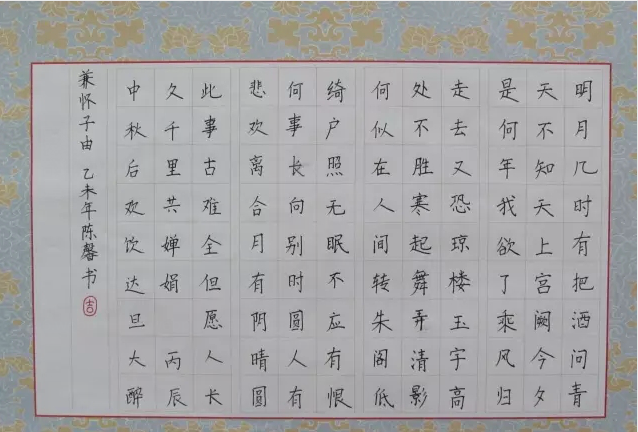 明月几时有把酒问青
天不知天上宫阙今夕
是何年我欲了乘风归
走去又恐琼楼玉宇高
处不胜寒起舞弄清影
何似在人间转朱阁低
绮户照无眠不应有恨
何事长向别时圆人有
悲欢离合月有阴晴圆
此事古难全但愿人长
久千里共婵娟 丙辰
中秋后欢饮达旦大醉
兼怀子由 乙未年陈馨书
吉